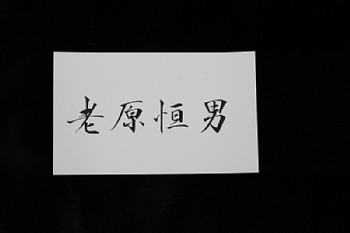 老原恒男